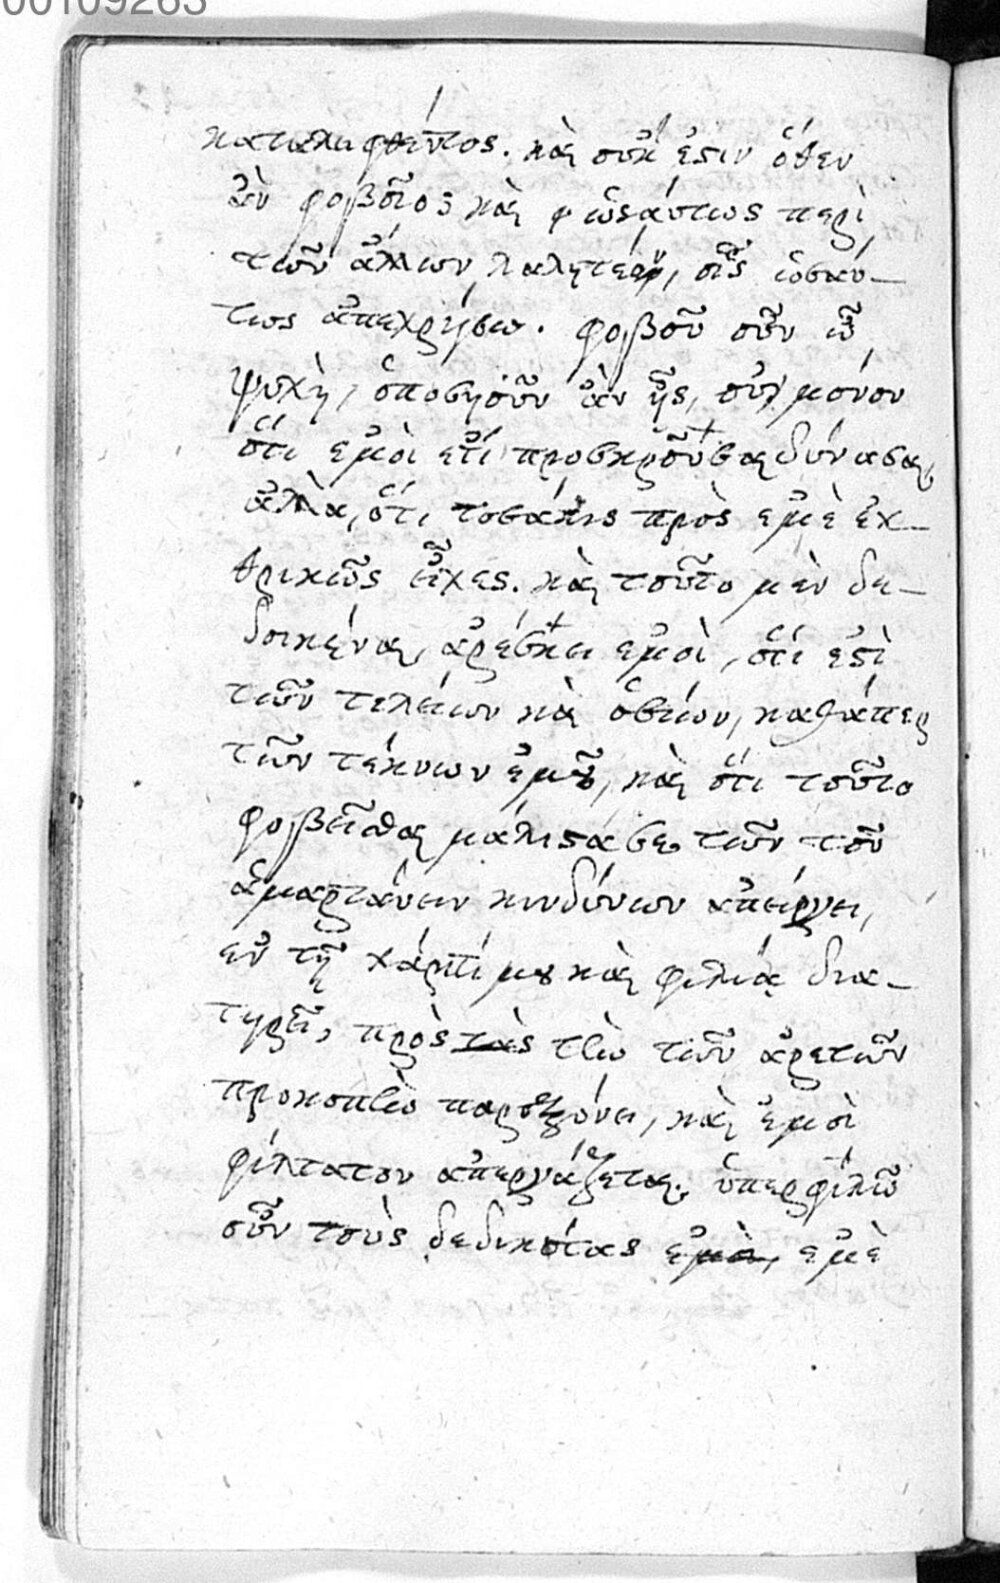 00109263
καταλειφθέντος. καὶ οὐκ ἔστιν ὅθεν
ἂν φοβοῖο; καὶ ὡσαύτως περὶ
τῶν ἄλλων λαλητέον, οἷς ὡσαύ-
τως ἀπεχρήσω. φοβοῦ οὖν ὦ
ψυχὴ, ὁποσησοῦν ἂν ᾖς, οὐ μόνον
ὅτι ἐμοὶ ἔτι προσκροῦσαι δύνασαι,
ἀλλὰ, ὅτι τοσάκις πρὸς ἐμὲ ἐχ-
θρικῶς εἶχες. καὶ τοῦτο μὲν δε-
δοικέναι, ἀρέσκει ἐμοὶ, ὅτι ἐστὶ
τῶν τελείων καὶ ὁσίων, καθάπερ
τῶν τέκνων ἐμοῦ, καὶ ὅτι τοῦτο
φοβεῖσθαι μάλιστά σε τῶν τοῦ
ἁμαρτάνειν κινδύνων ἀπείργει,
ἐν τῇ χάριτί μου καὶ φιλίᾳ δια-
τηρεῖ, πρὸς τὰς τὴν τῶν ἀρετῶν
προκοπὴν παροξύνει, καὶ ἐμοὶ
φίλτατον ἀπεργάζεται. ὑπερφιλῶ
οὖν τοὺς δεδικότας ἐμὰ, ἐμὲ